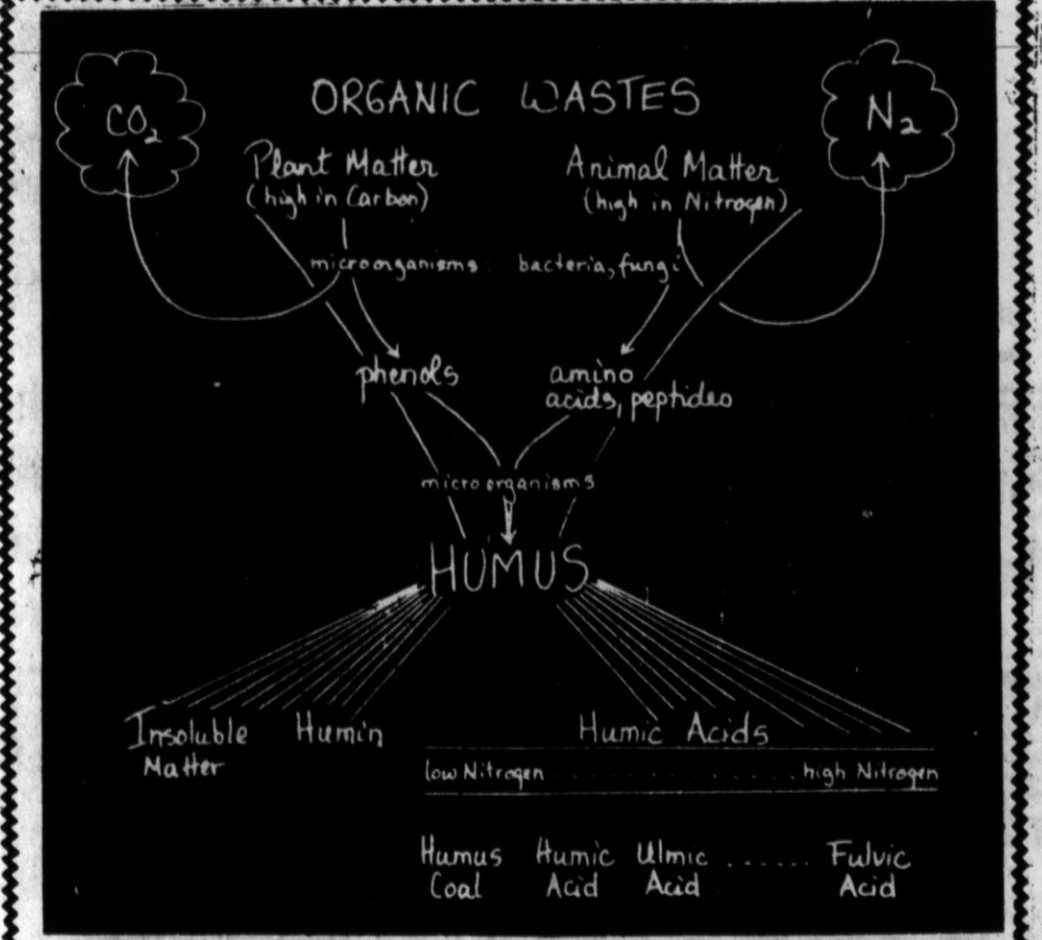 ORGANIC WASTES
CO2
N2
Plant Matter
(high in Carbon)
Animal Matter
(high in Nitrogen)
microorganisms: bacteria, fungi
phenols
amino
acids, peptides
microorganisms
HUMUS
Insoluble
Matter
Humin
Humic Acids
low Nitrogen . . . . . . . . . . . high Nitrogen
Humus
Coal
Humic
Acid
Ulmic
Acid
......
Fulvic
Acid